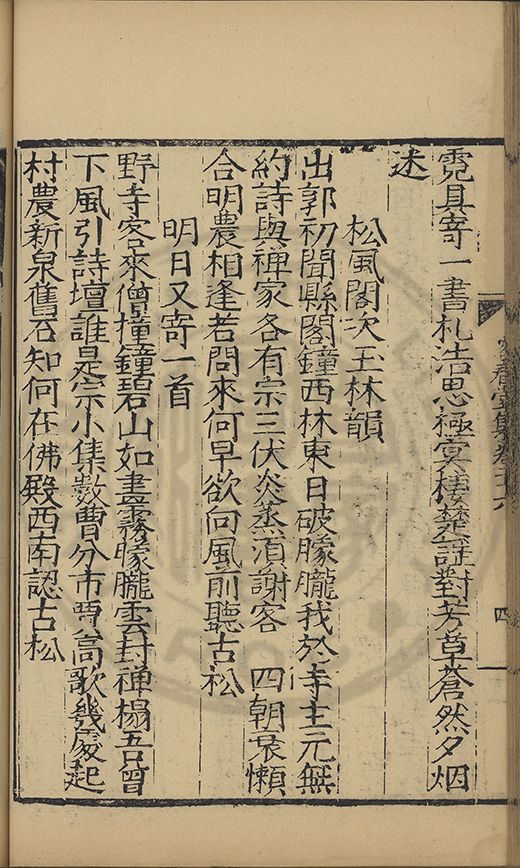 霓具寄一書札浩思極冥棲楚謡對芳草蒼然夕烟
迷
松風閣次玉林韻
出郭初聞縣閣鐘西林東日破朦朧我於寺主元無
約詩與禅家各有宗三伏炎蒸須謝客　四朝衰懶
合明農相逢若問來何早欲向風前聽古松
明日又寄一首
野寺客來僧撞鐘碧山如畫霧朦朧雲封禅榻吾曾
下風引詩壇誰是宗小集數曹分市兩高歌幾處起
村農新泉舊石知何在佛殿西南認古松
四